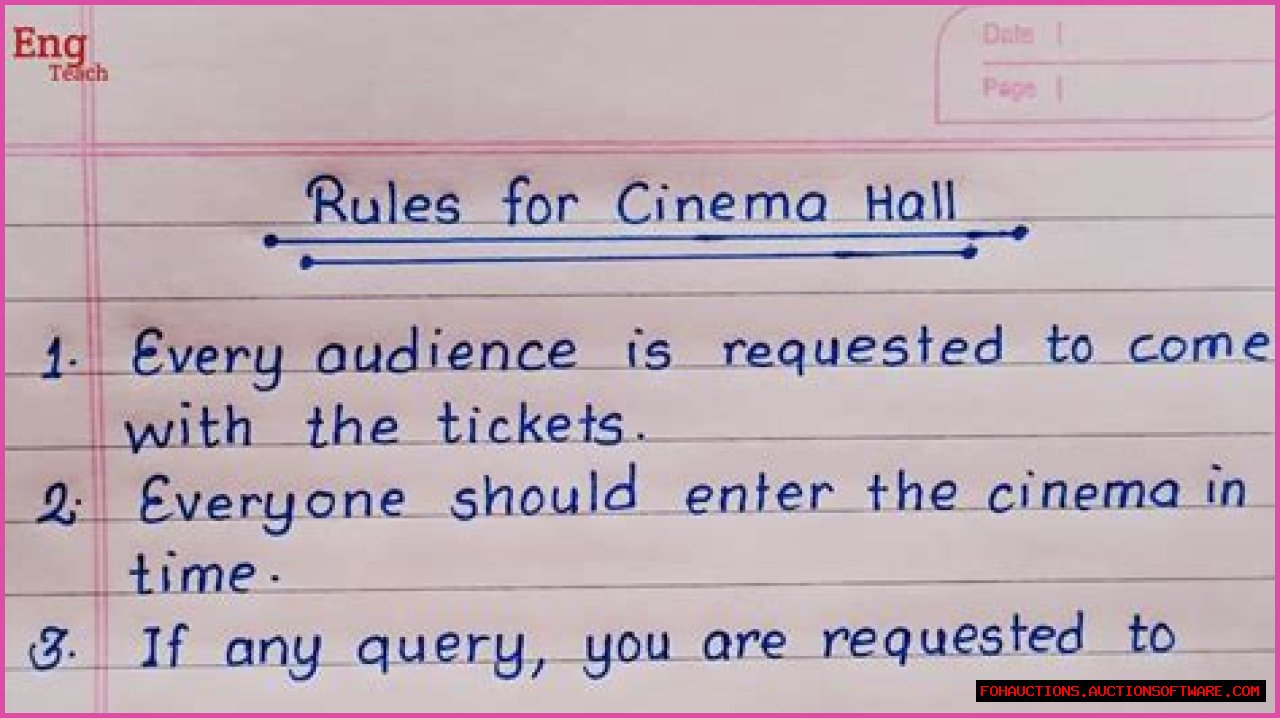 Eng
Teach
Date
Page
Rules for Cinema Hall
1. Every audience is requested to come
with the tickets.
2. Everyone should enter the cinema in
time.
3. If any query, you are requested to
FOHAUCTIONS.AUCTIONSOFTWARE.COM